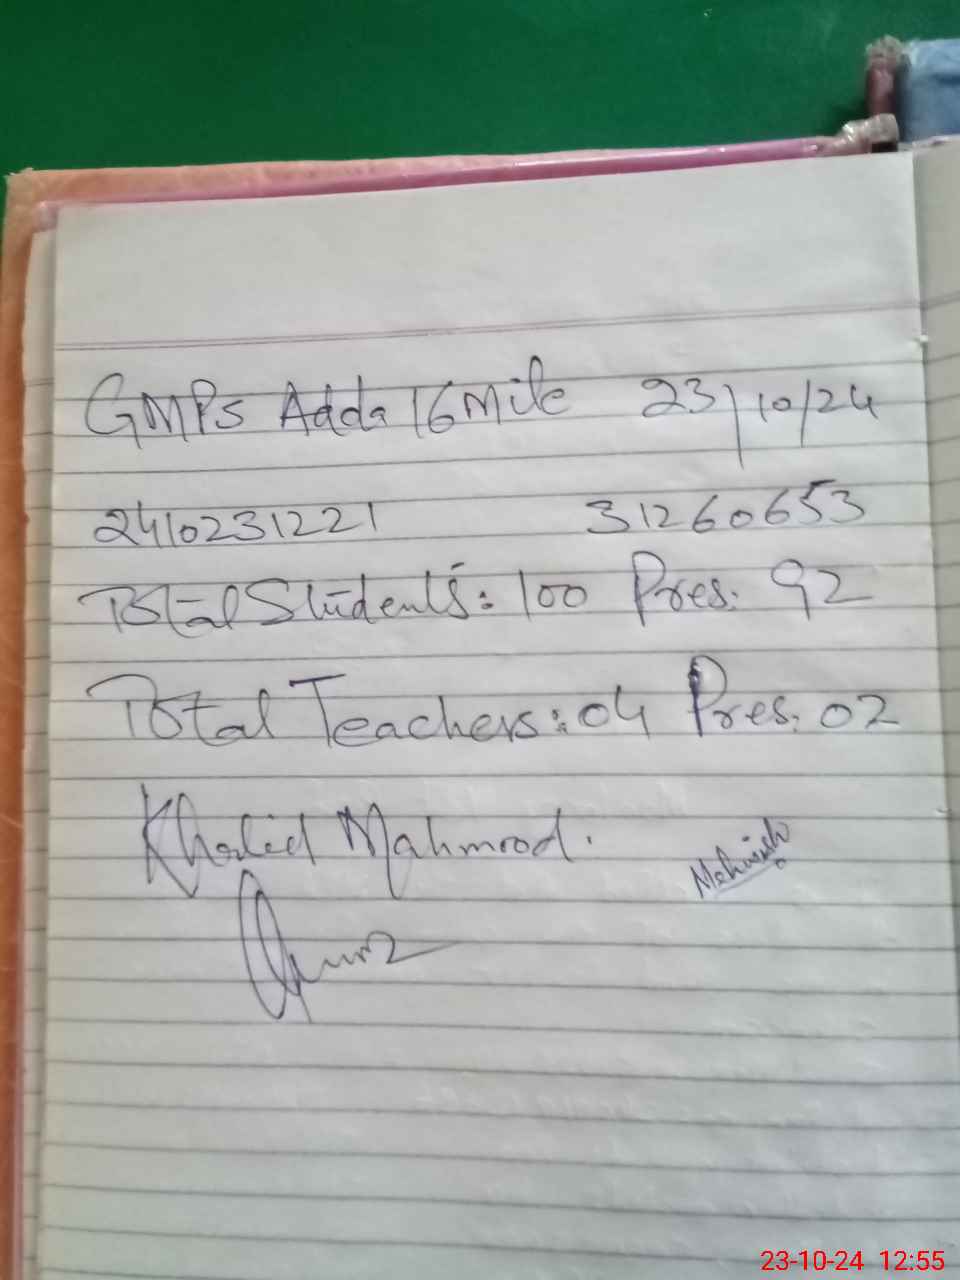 GMPS Adda 16 Mile 23/10/24
2410231221 31260653
Total Students: 100 Pres: 92
Total Teachers: 04 Pres: 02
Khalid Mahmood.
Mehwish
23-10-24 12:55